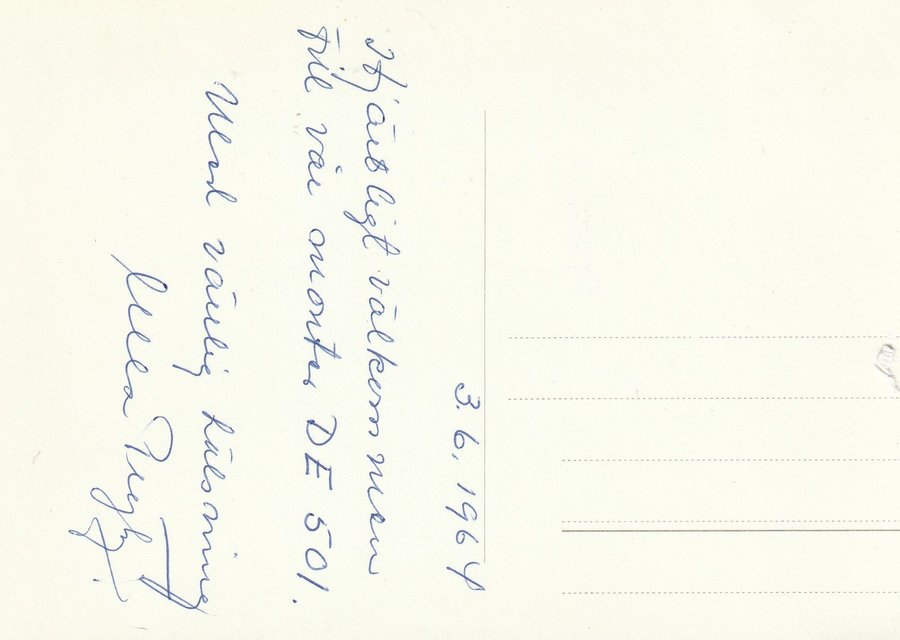 3.6.1964
Hjärtligt välkommen
till vår monter DE 501.
Med vänlig hälsning
Ulla